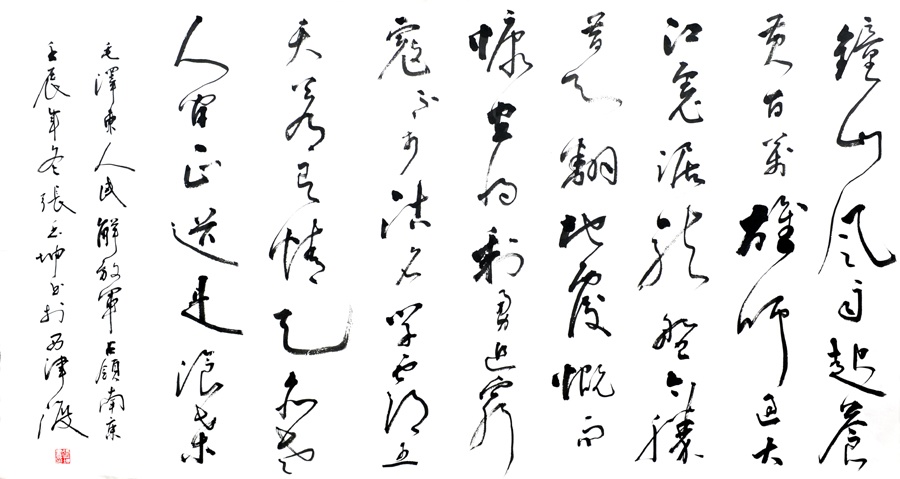 鐘山风雨起蒼
黄百萬雄师过大
江虎踞龙盘今勝
昔天翻地覆慨而
慷宜将剩勇追穷
寇不可沽名学霸王
天若有情天亦老
人间正道是滄桑
毛澤東人民解放軍占領南京
壬辰年冬張志坤书於西津渡